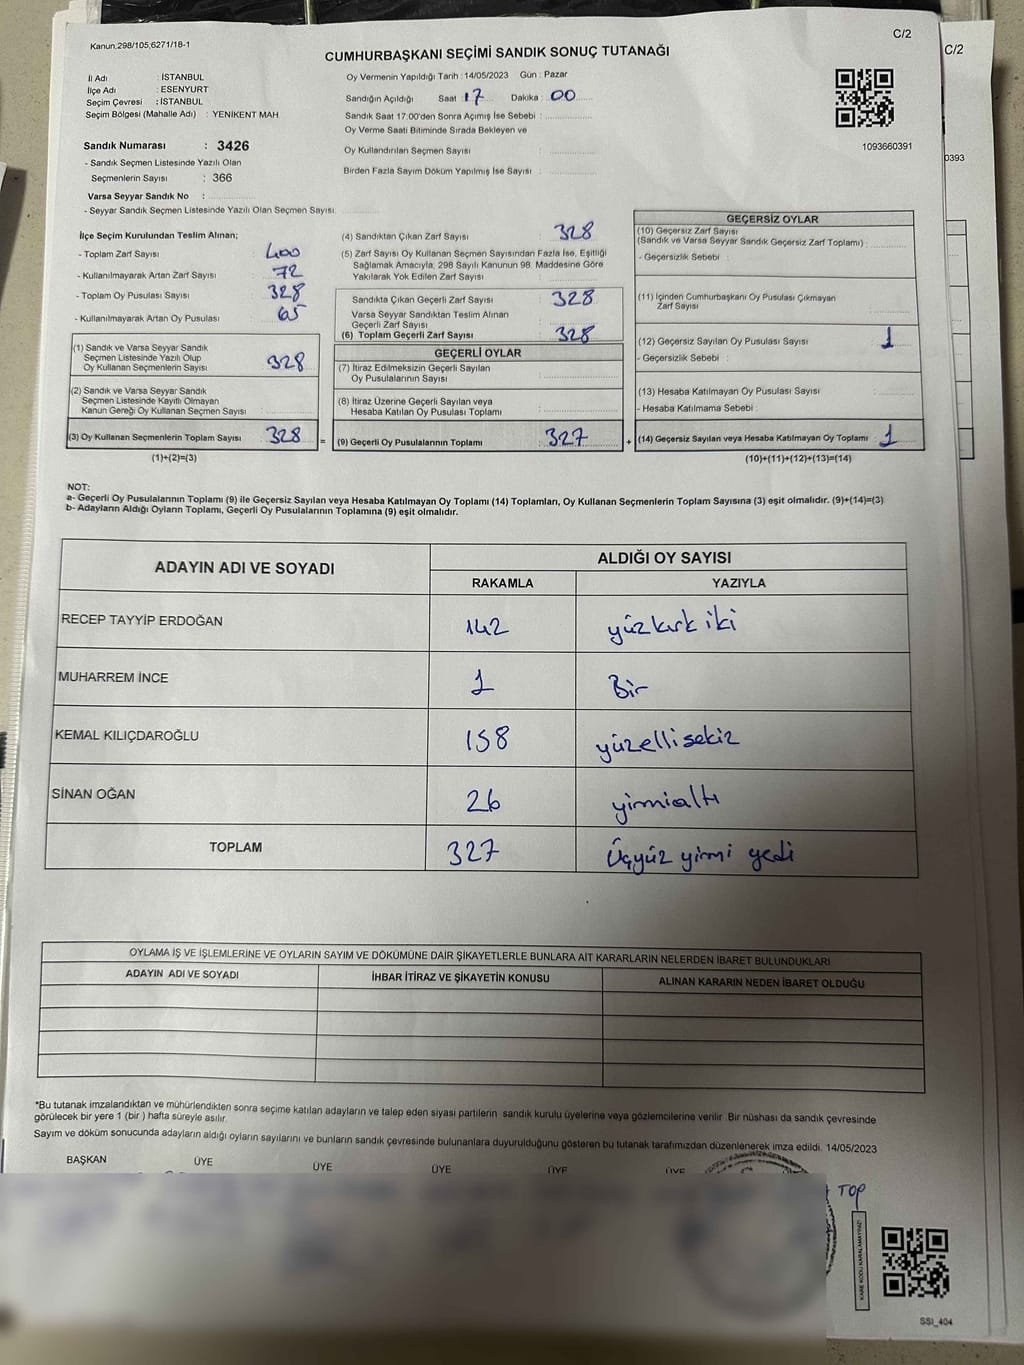 Kanun.298/105;6271/18-1
C/2
C/2
CUMHURBAŞKANI SEÇİMİ SANDIK SONUÇ TUTANAĞI
İl Adı : İSTANBUL
İlçe Adı : ESENYURT
Seçim Çevresi : İSTANBUL
Seçim Bölgesi (Mahalle Adı) : YENİKENT MAH.
Oy Vermenin Yapıldığı Tarih :14/05/2023 Gün : Pazar
Sandığın Açıldığı Saat :17 Dakika :00
Sandık Saat 17:00'den Sonra Açımış İse Sebebi :
Oy Verme Saati Bitiminde Sırada Bekleyen ve
Oy Kullandırılan Seçmen Sayısı :
Birden Fazla Sayım Döküm Yapılmış İse Sayısı :
1093660391
0393
Sandık Numarası : 3426
- Sandık Seçmen Listesinde Yazılı Olan
Seçmenlerin Sayısı : 366
Varsa Seyyar Sandık No :
- Seyyar Sandık Seçmen Listesinde Yazılı Olan Seçmen Sayısı:
İlçe Seçim Kurulundan Teslim Alınan;
- Toplam Zarf Sayısı : 400
- Kullanılmayarak Artan Zarf Sayısı : 72
- Toplam Oy Pusulası Sayısı : 328
- Kullanılmayarak Artan Oy Pusulası : 65
(1) Sandık ve Varsa Seyyar Sandık
Seçmen Listesinde Yazılı Olup
Oy Kullanan Seçmenlerin Sayısı : 328
(2) Sandık ve Varsa Seyyar Sandık
Seçmen Listesinde Kayıtlı Olmayan
Kanun Gereği Oy Kullanan Seçmen Sayısı :
(3) Oy Kullanan Seçmenlerin Toplam Sayısı : 328 =
(1)+(2)=(3)
(4) Sandıktan Çıkan Zarf Sayısı : 328
(5) Zarf Sayısı Oy Kullanan Seçmen Sayısından Fazla İse, Eşitliği
Sağlamak Amacıyla, 298 Sayılı Kanunun 98. Maddesine Göre
Yakılarak Yok Edilen Zarf Sayısı :
Sandıkta Çıkan Geçerli Zarf Sayısı : 328
Varsa Seyyar Sandıktan Teslim Alınan
Geçerli Zarf Sayısı :
(6) Toplam Geçerli Zarf Sayısı : 328
GEÇERLİ OYLAR
(7) İtiraz Edilmeksizin Geçerli Sayılan
Oy Pusulalarının Sayısı :
(8) İtiraz Üzerine Geçerli Sayılan veya
Hesaba Katılan Oy Pusulası Toplamı :
(9) Geçerli Oy Pusulalarının Toplamı : 327 +
GEÇERSİZ OYLAR
(10) Geçersiz Zarf Sayısı
(Sandık ve Varsa Seyyar Sandık Geçersiz Zarf Toplamı) :
- Geçersizlik Sebebi :
(11) İçinden Cumhurbaşkanı Oy Pusulası Çıkmayan
Zarf Sayısı :
(12) Geçersiz Sayılan Oy Pusulası Sayısı : 1
- Geçersizlik Sebebi :
(13) Hesaba Katılmayan Oy Pusulası Sayısı :
- Hesaba Katılmama Sebebi :
(14) Geçersiz Sayılan veya Hesaba Katılmayan Oy Toplamı : 1
(10)+(11)+(12)+(13)=(14)
NOT:
a- Geçerli Oy Pusulalarının Toplamı (9) ile Geçersiz Sayılan veya Hesaba Katılmayan Oy Toplamı (14) Toplamları, Oy Kullanan Seçmenlerin Toplam Sayısına (3) eşit olmalıdır. (9)+(14)=(3)
b- Adayların Aldığı Oyların Toplamı, Geçerli Oy Pusulalarının Toplamına (9) eşit olmalıdır.
ADAYIN ADI VE SOYADI ALDIĞI OY SAYISI
RAKAMLA YAZIYLA
RECEP TAYYİP ERDOĞAN 142 yüzkırk iki
MUHARREM İNCE 1 Bir
KEMAL KILIÇDAROĞLU 158 yüzellisekiz
SİNAN OĞAN 26 yirmialtı
TOPLAM 327 Üçyüz yirmi yedi
OYLAMA İŞ VE İŞLEMLERİNE VE OYLARIN SAYIM VE DÖKÜMÜNE DAİR ŞİKAYETLERLE BUNLARA AİT KARARLARIN NELERDEN İBARET BULUNDUKLARI
ADAYIN ADI VE SOYADI İHBAR İTİRAZ VE ŞİKAYETİN KONUSU ALINAN KARARIN NEDEN İBARET OLDUĞU
*Bu tutanak imzalandıktan ve mühürlendikten sonra seçime katılan adayların ve talep eden siyasi partilerin sandık kurulu üyelerine veya gözlemcilerine verilir. Bir nüshası da sandık çevresinde
görülecek bir yere 1 (bir ) hafta süreyle asılır.
Sayım ve döküm sonucunda adayların aldığı oyların sayılarını ve bunların sandık çevresinde bulunanlara duyurulduğunu gösteren bu tutanak tarafımızdan düzenlenerek imza edildi. 14/05/2023
BAŞKAN ÜYE ÜYE ÜYE ÜYE ÜYE
TOP
KARE KODU KARALAMAYINIZ!
SSI_404